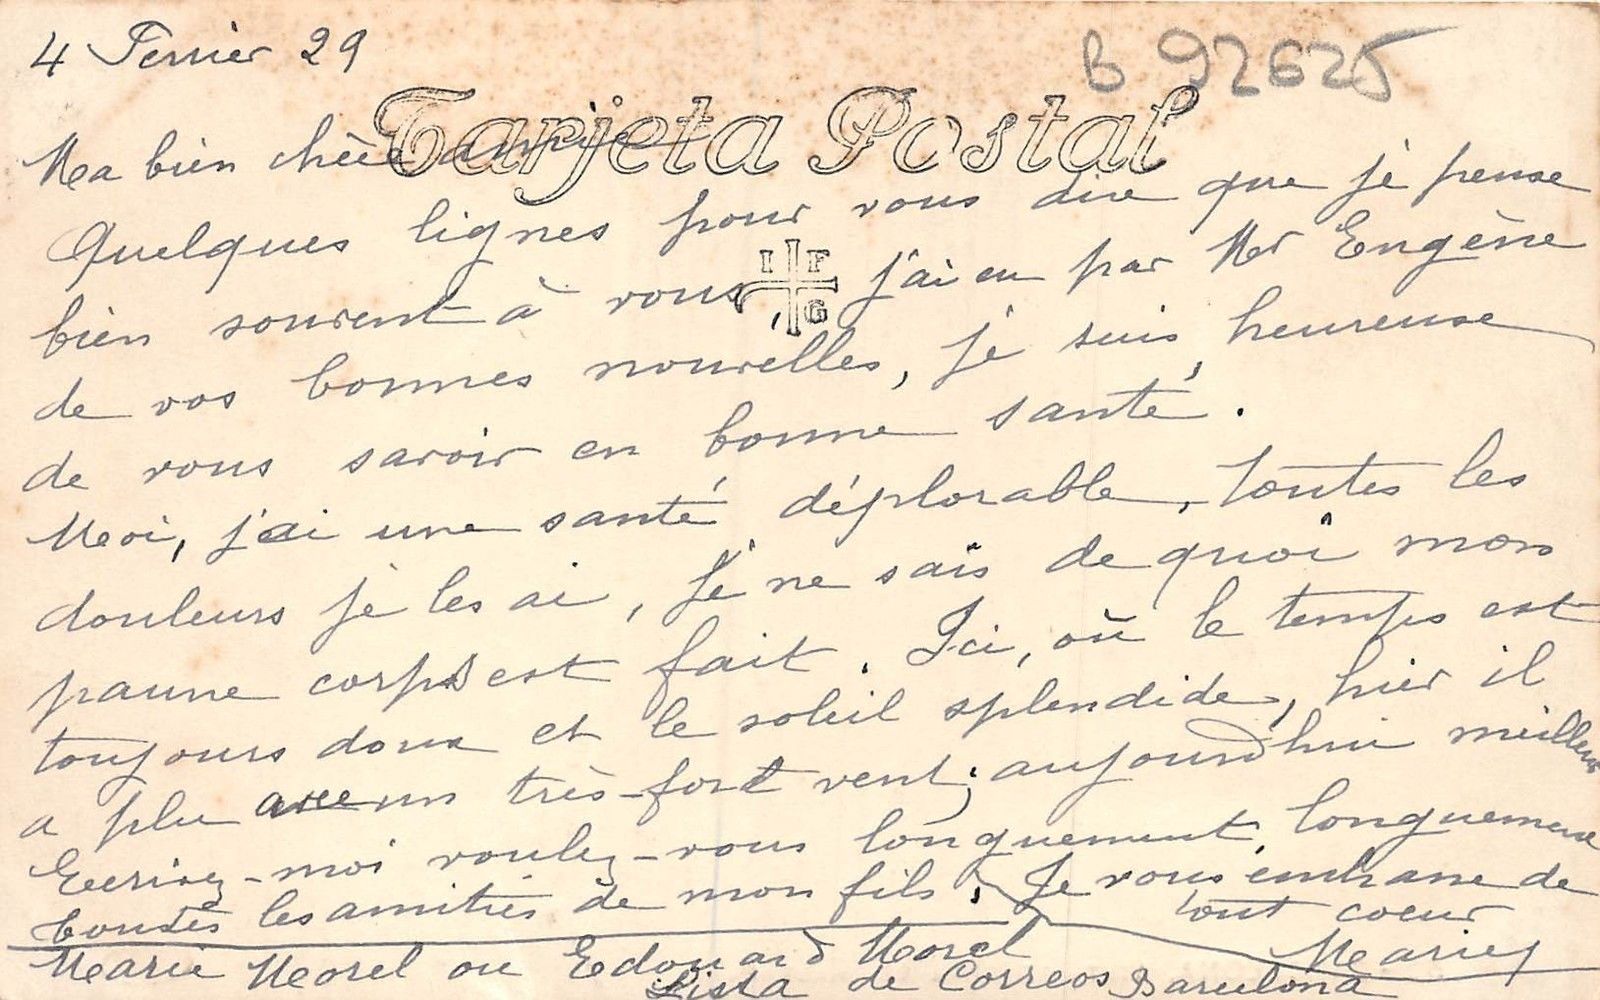 4 Fevrier 29
B 92625
Tarjeta Postal
Ma bien chère amie
Quelques lignes pour vous dire que je pense
I F G
bien souvent à vous, j'ai eu par Mr Eugène
de vos bonnes nouvelles, je suis heureuse
de vous savoir en bonne santé.
Moi, j'ai une santé déplorable, toutes les
douleurs je les ai, je ne sais de quoi mon
pauvre corps est fait. Ici, où le temps est
toujours doux et le soleil splendide, hier il
a plu avec un très-fort vent; aujourd'hui meilleur
Ecrivez-moi voulez-vous longuement, longuement
toutes les amitiés de mon fils. Je vous embrasse de
tout coeur
Marie
Marie Morel ou Edouard Morel
Lista de Correos Barcelona